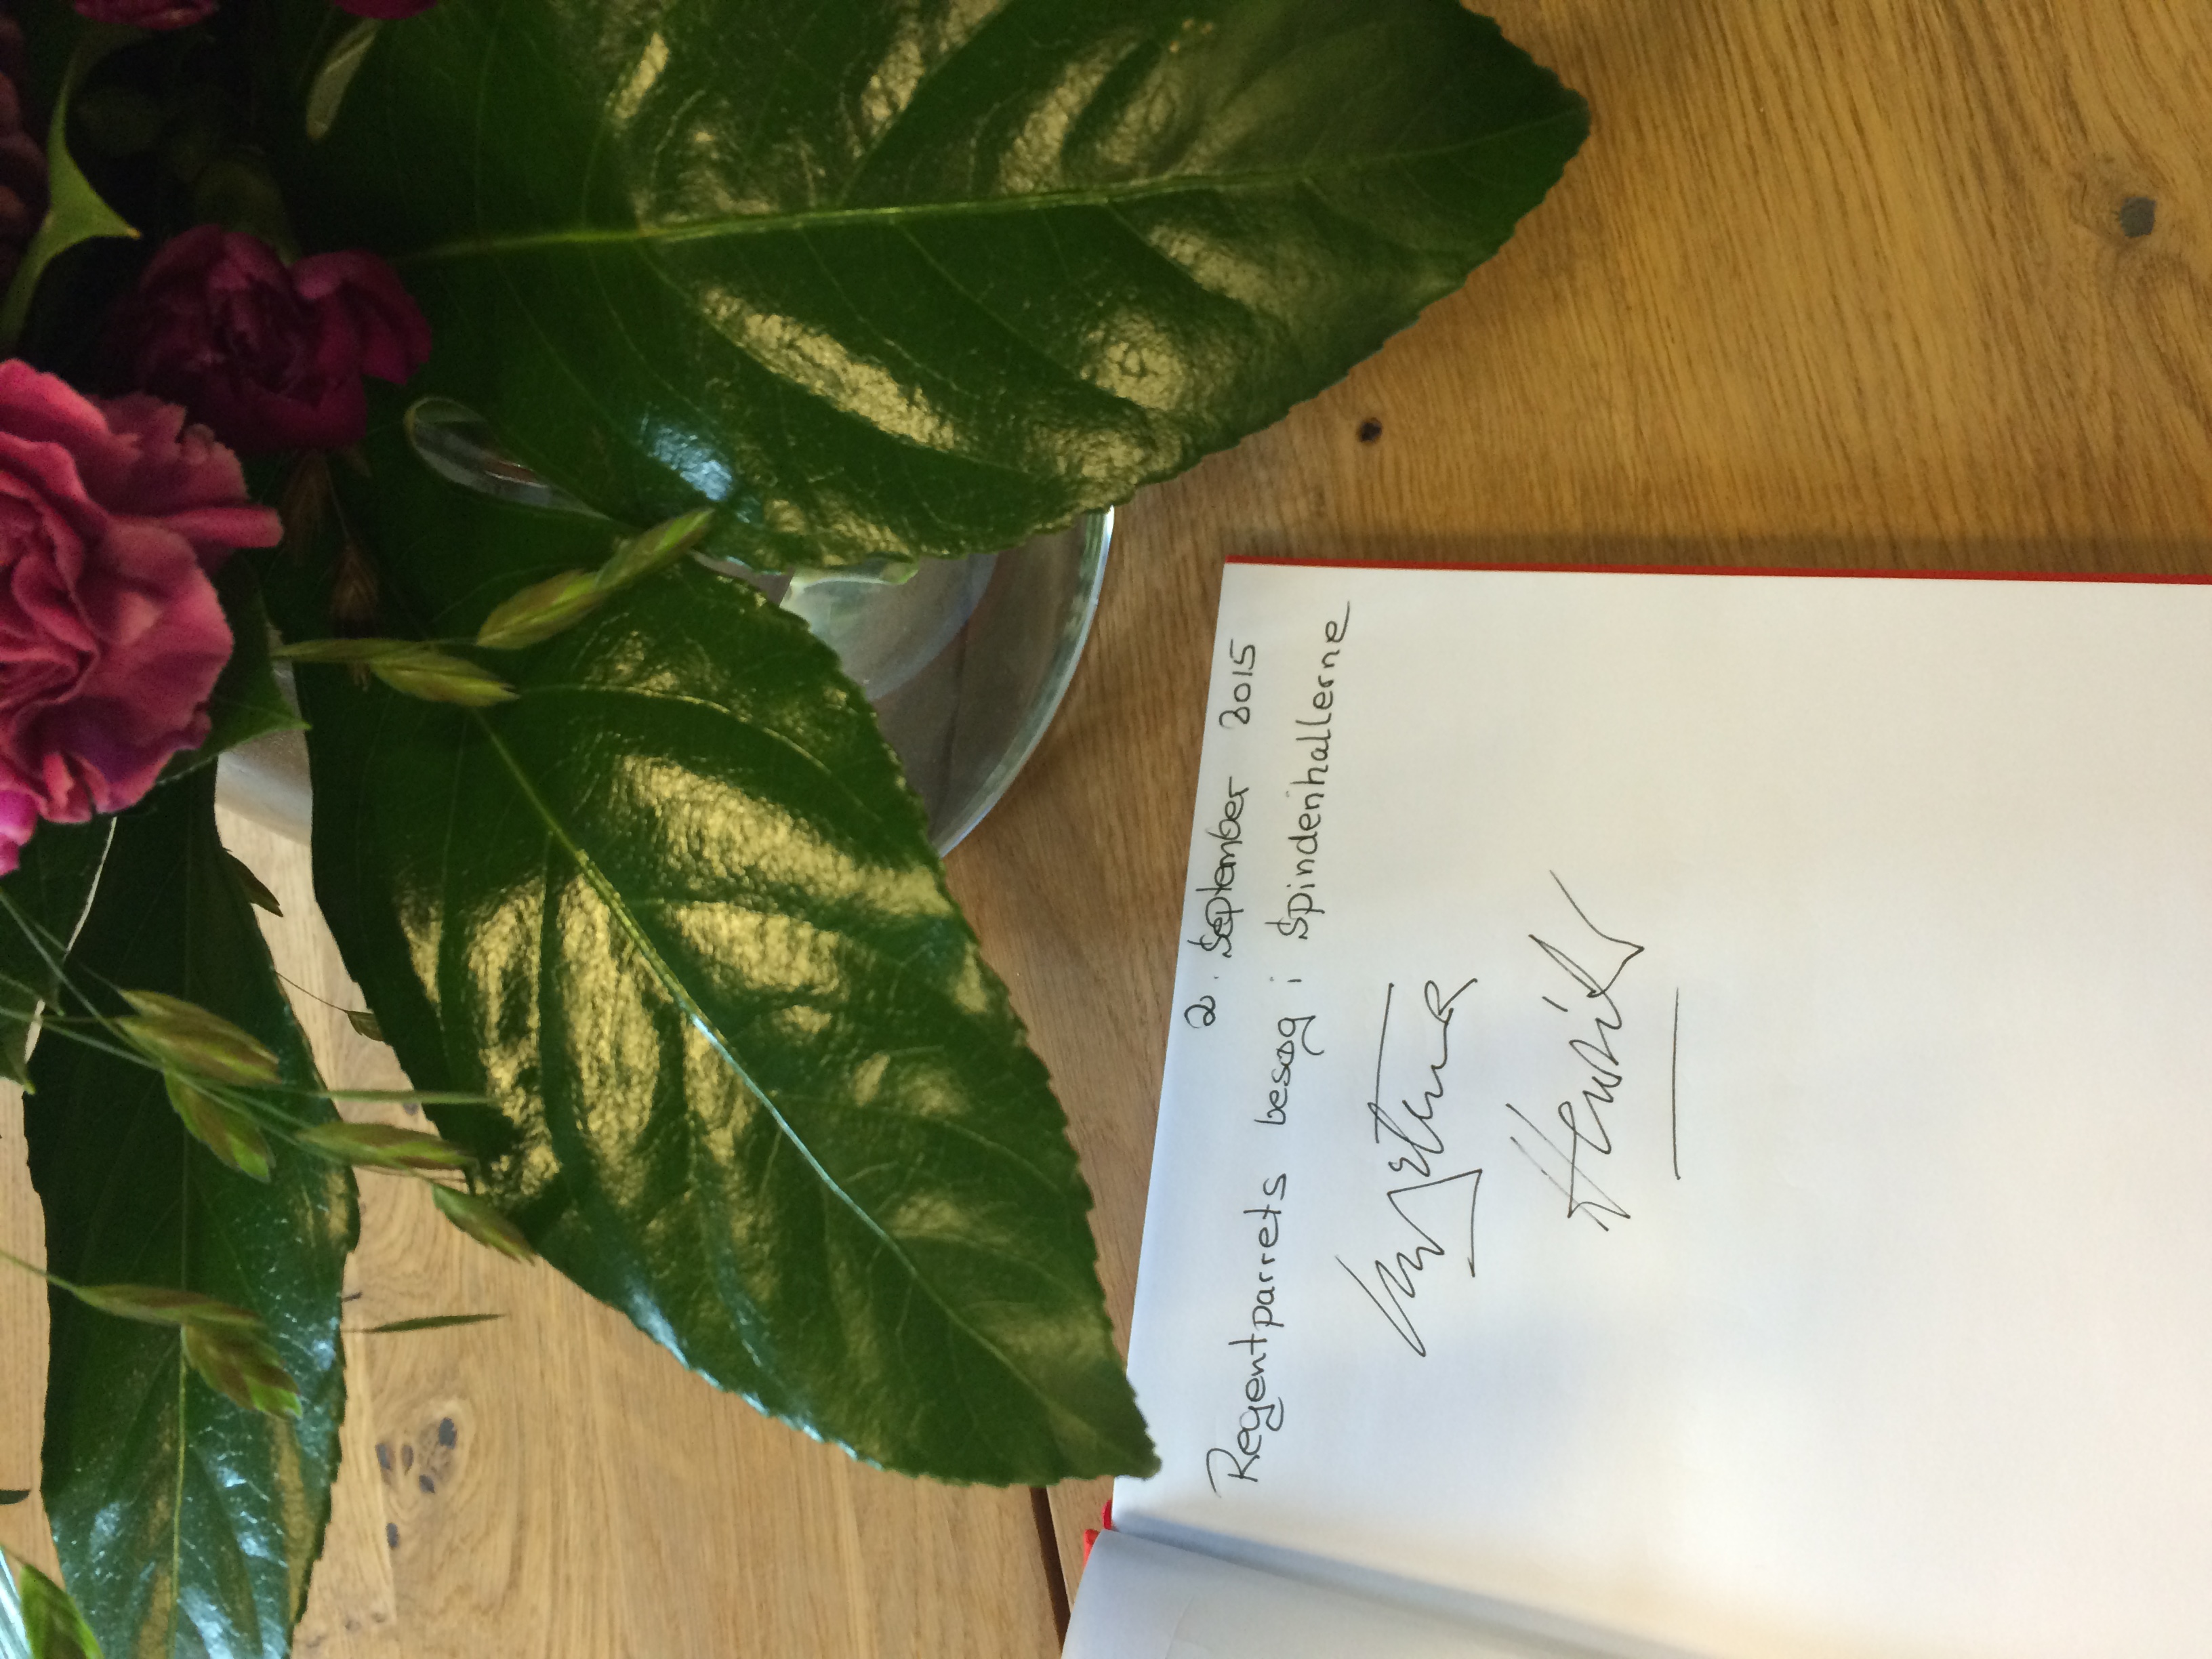 2. September 2015
Regentparrets besøg i Spindenhallerne
Margrethe R
Henrik